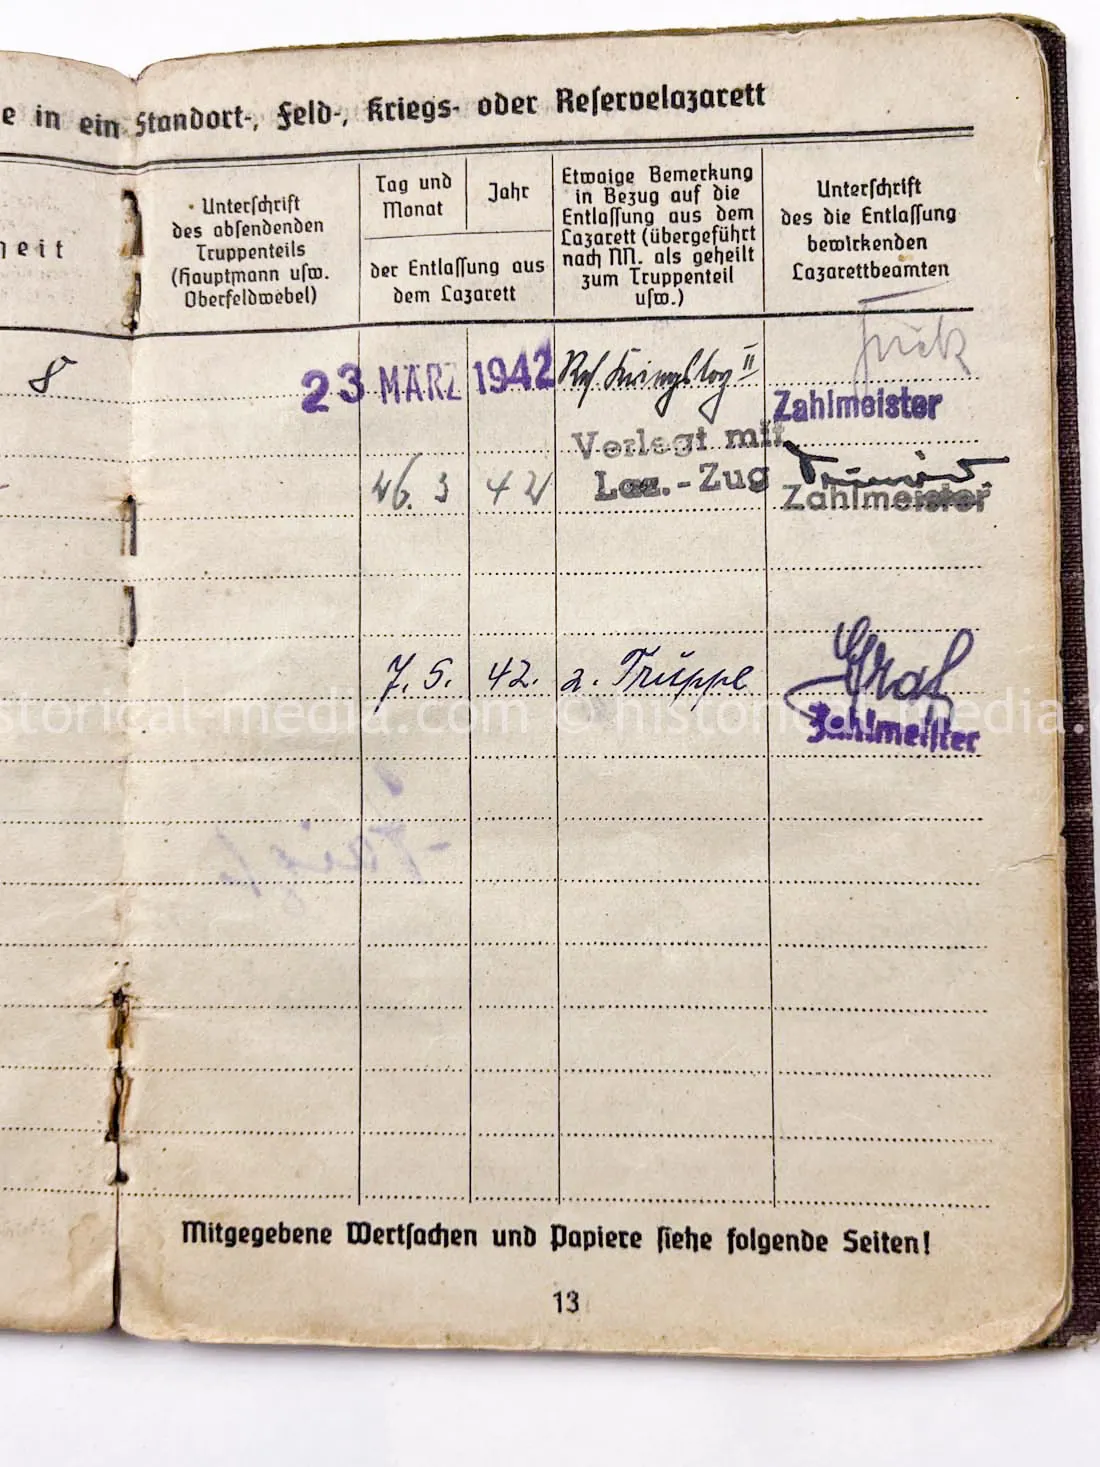 e in ein Standort-, Feld-, Kriegs- oder Reservelazarett
heit
Unterschrift
des absendenden
Truppenteils
(Hauptmann usw.
Oberfeldwebel)
Tag und
Monat
Jahr
der Entlassung aus
dem Lazarett
Etwaige Bemerkung
in Bezug auf die
Entlassung aus dem
Lazarett (übergeführt
nach NN. als geheilt
zum Truppenteil
usw.)
Unterschrift
des die Entlassung
bewirkenden
Lazarettbeamten
8
23 MÄRZ 1942
II
Zahlmeister
26. 3 42
Verlegt mit
Laz.-Zug
Zahlmeister
7. 5. 42. z. Truppe
Graf
Zahlmeister
historical-media.com © historical-media.c
Mitgegebene Wertsachen und Papiere siehe folgende Seiten!
13